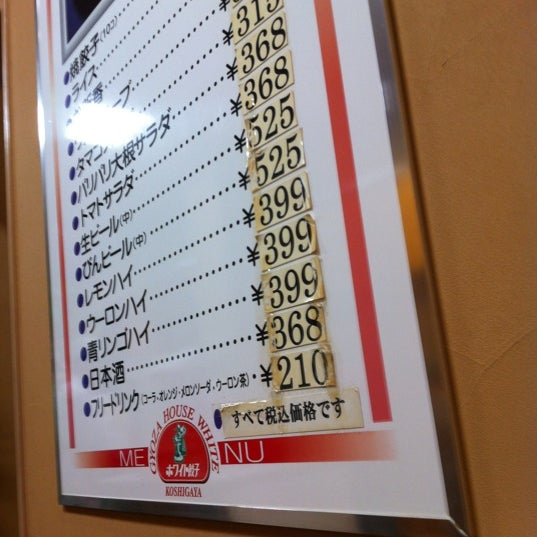 ●焼餃子(10コ)
●ライス
新香
タマゴ ープ ¥315
●パリパリ大根サラダ ¥368
●トマトサラダ ¥368
●生ビール(中) ¥525
●びんビール(中) ¥525
●レモンハイ ¥399
●ウーロンハイ ¥399
●青リンゴハイ ¥399
●日本酒 ¥368
●フリードリンク(コーラ・オレンジ・メロンソーダ・ウーロン茶) ¥210
●すべて税込価格です
MENU
GYOZA HOUSE WHITE
ホワイト餃子
KOSHIGAYA